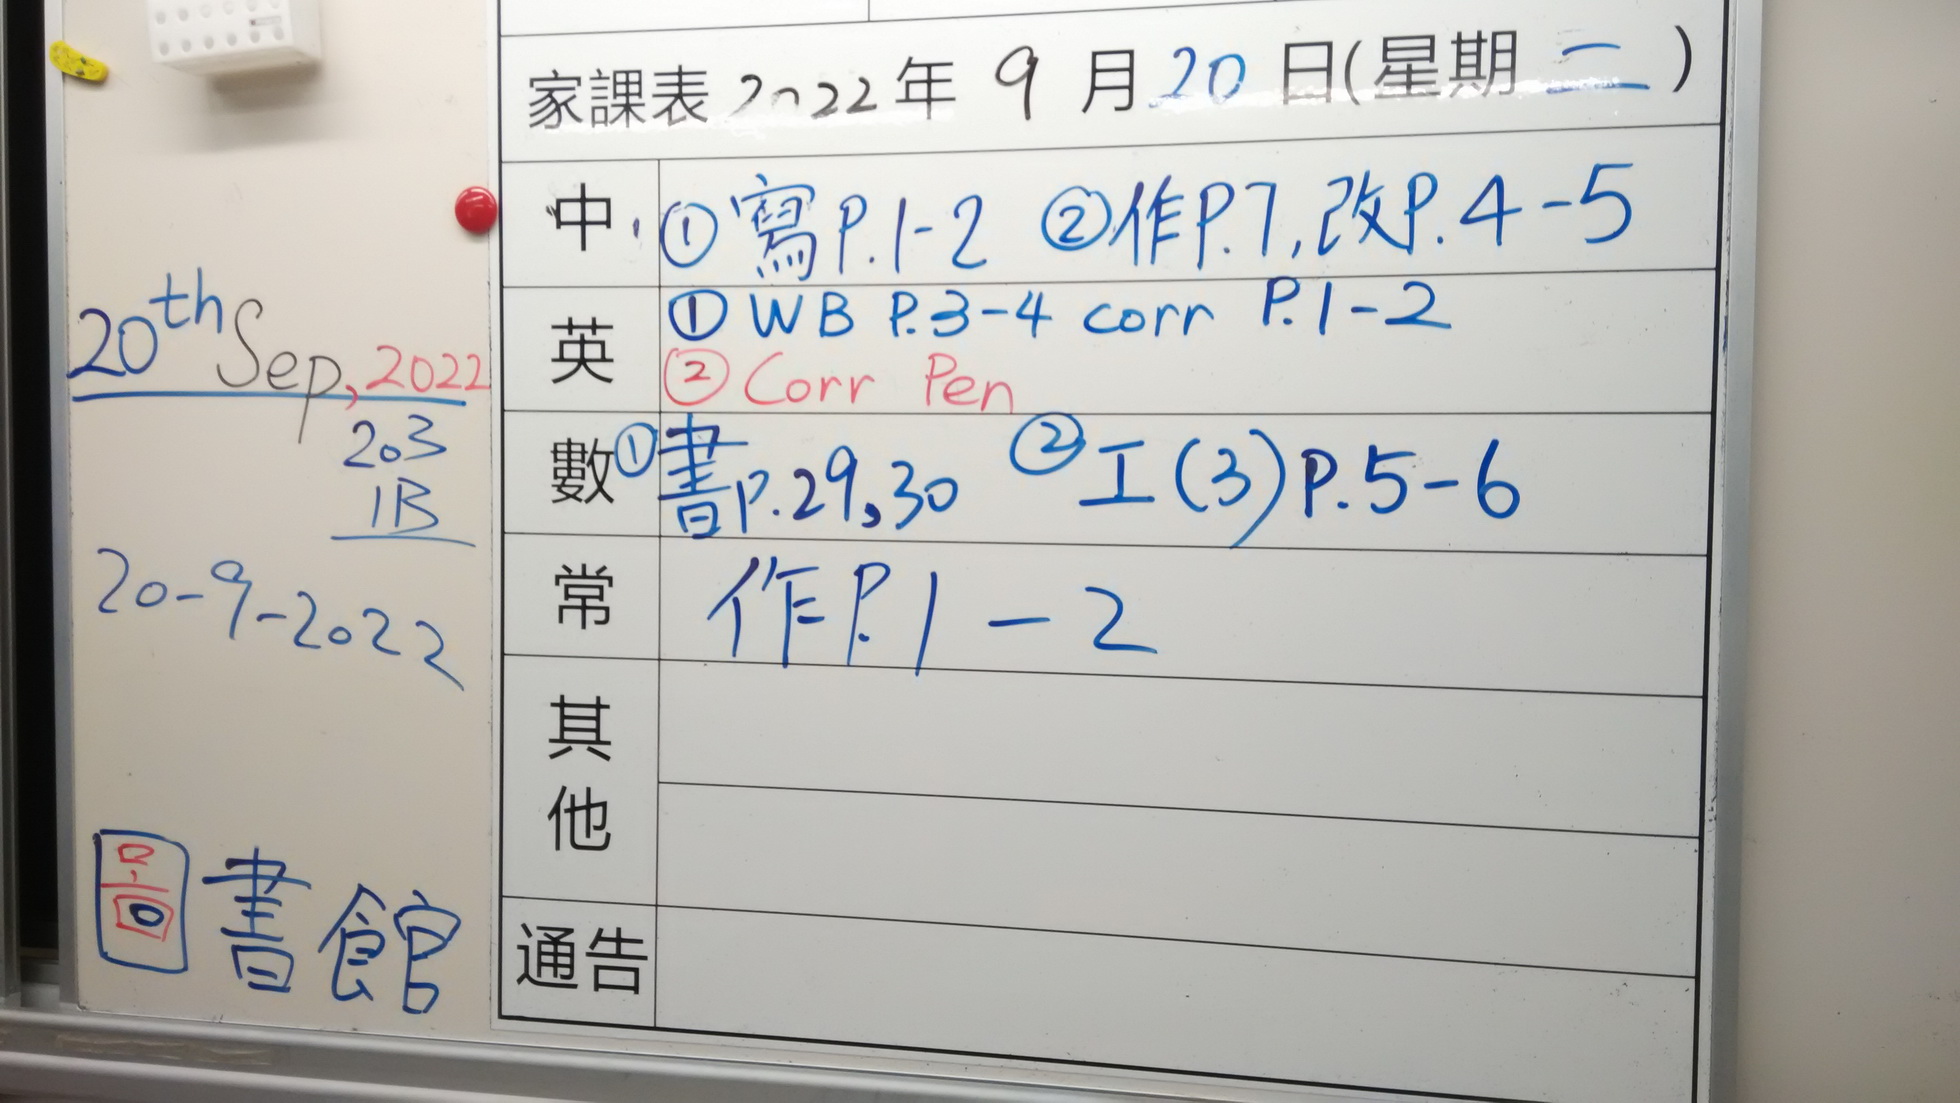 20th Sep, 2022
203
1B
20-9-2022
圖書館
家課表 2022年 9月20日(星期二)
中 ①寫P.1-2 ②作P.7,改P.4-5
英 ① WB P.3-4 corr P.1-2
② Corr Pen
數 ①書P.29,30 ②工(3)P.5-6
常 作P.1-2
其他
通告